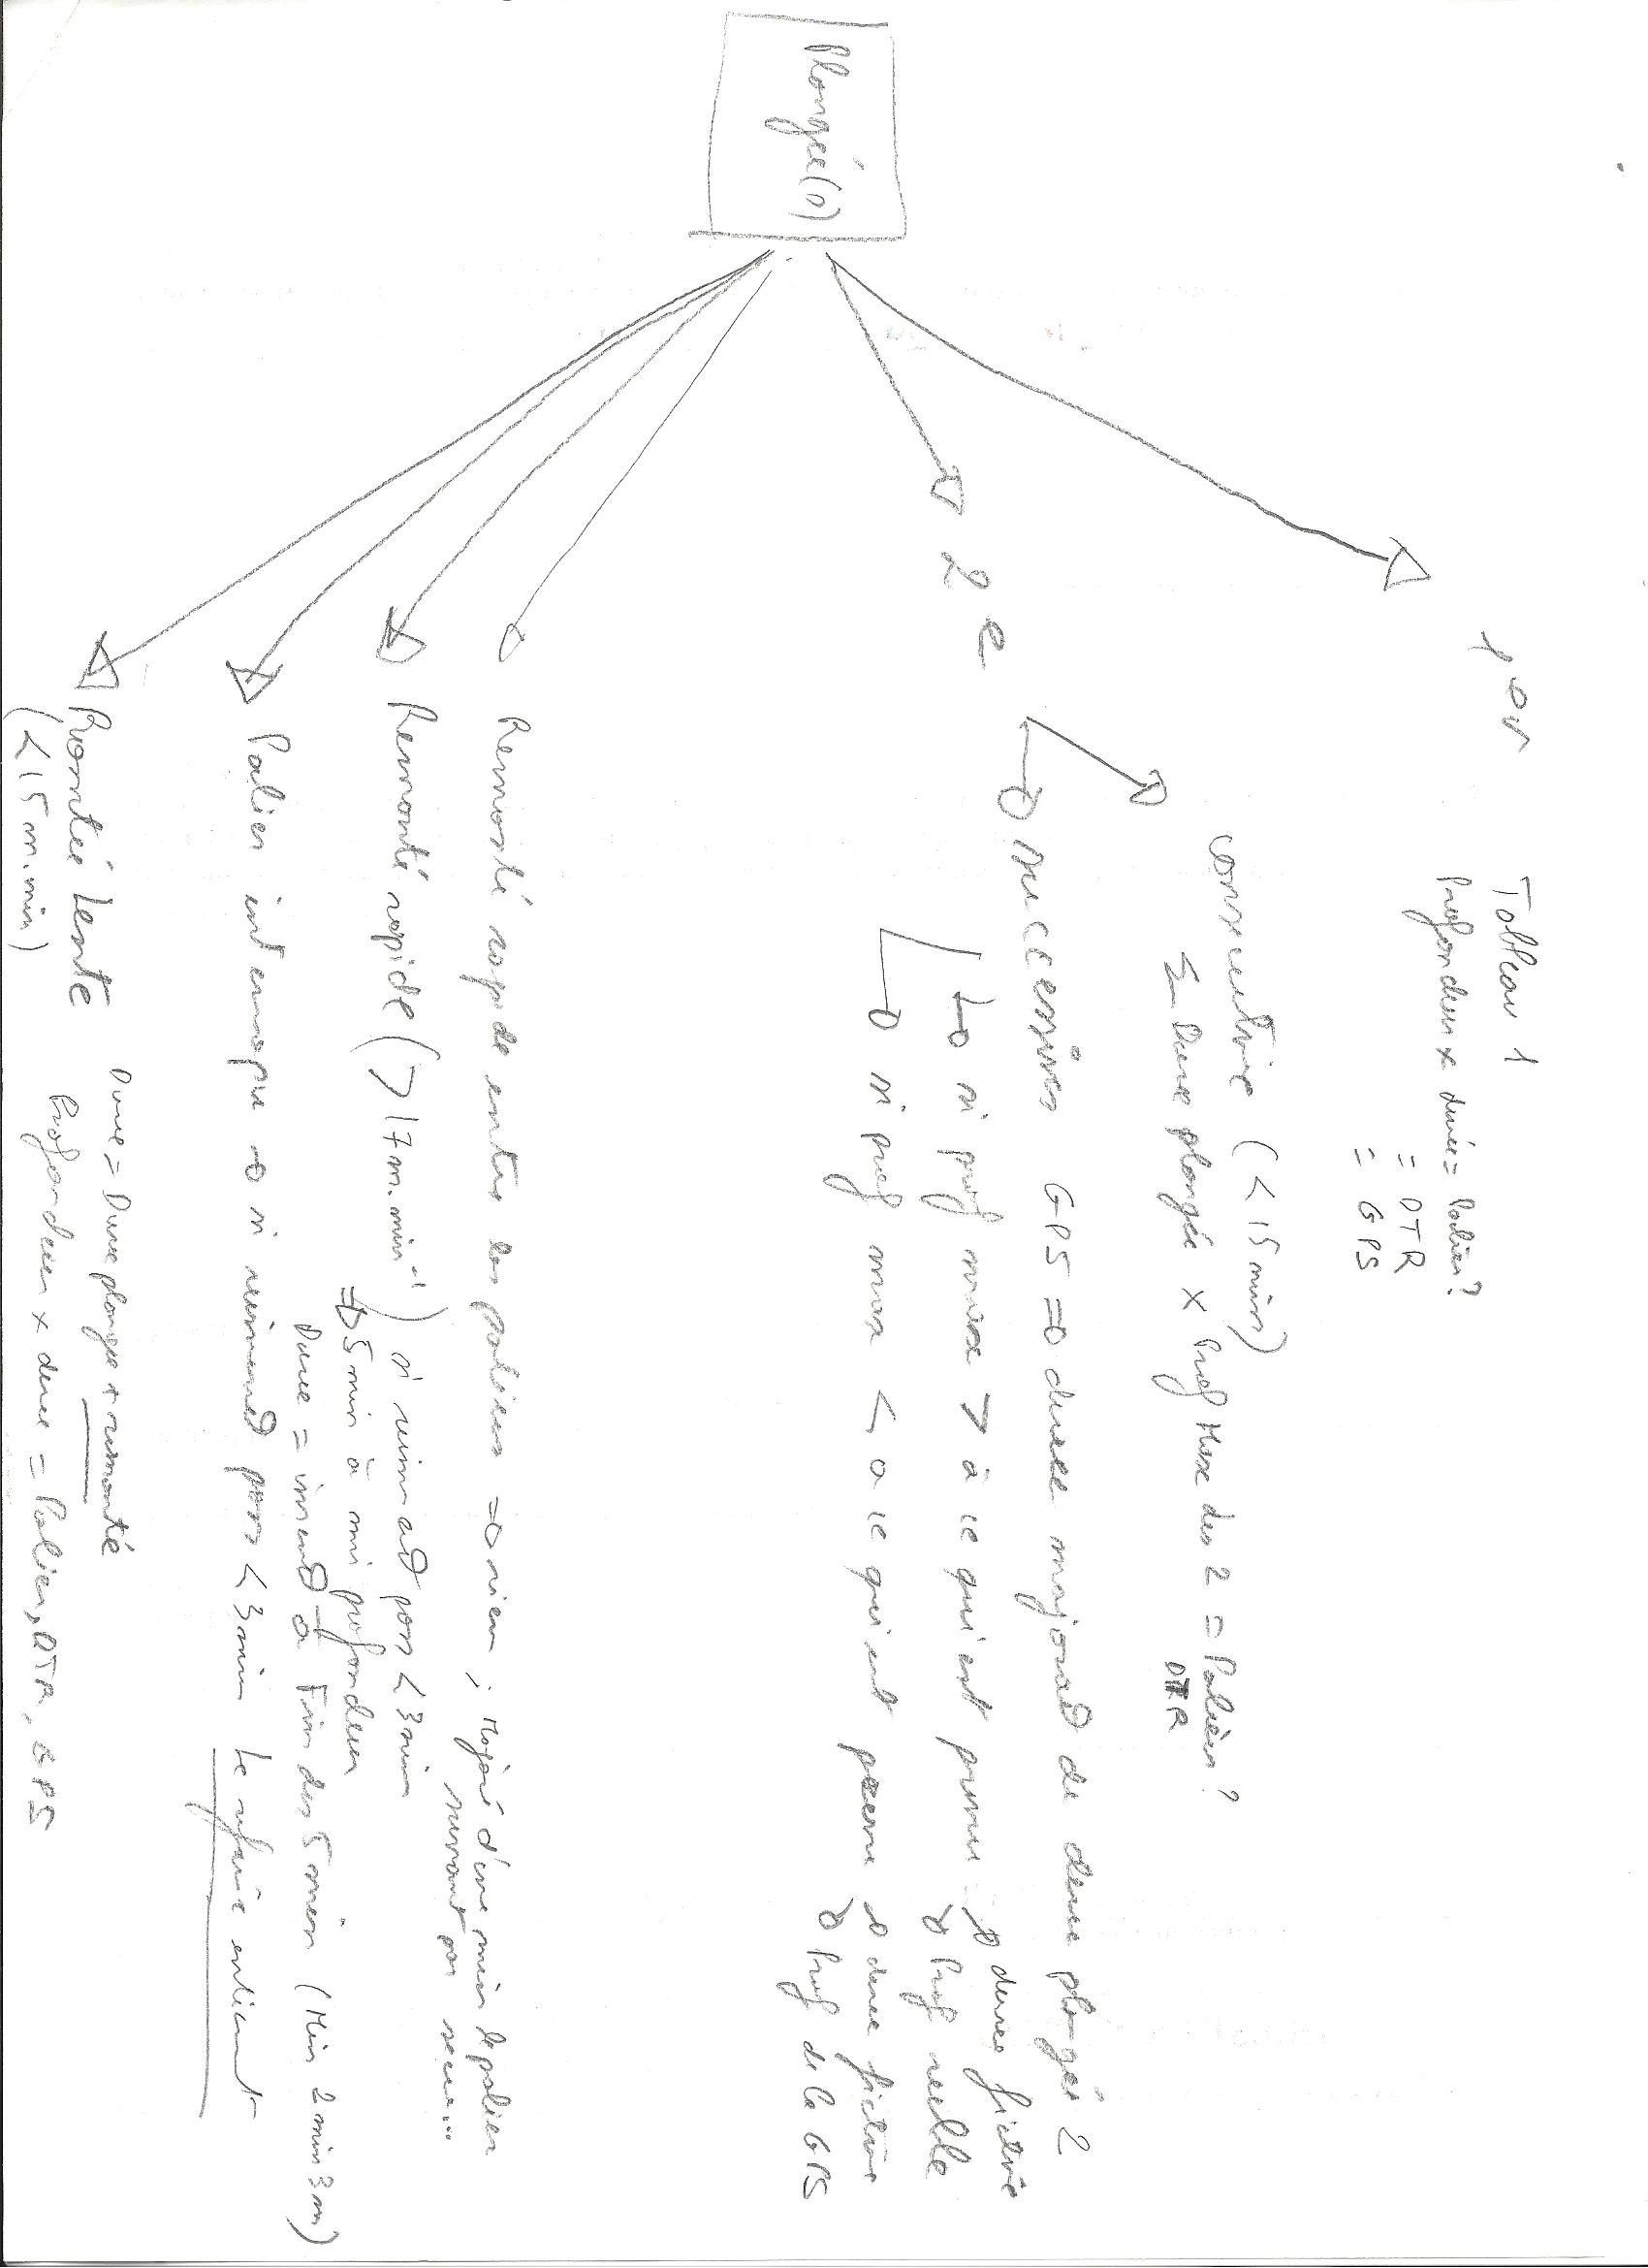 Plongée(s)
1 ou
Tableau 1
Profondeur x durée = Palier?
= DTR
= GPS
2 e
consecutive (<15 min)
Σ Duree plongée x Prof Max des 2 = Palier?
DTR
successives GPS => duree majorat de duree plongée 2
si prof max > à ce qui est prevu
duree fictive
Prof reelle
si prof max < a ce qui est prevu
duree fictive
Prof de la GPS
Remonté rapide entre les paliers => rien, Majoré d'une min le palier
suivant par secu...
Remonté rapide (>17m.min⁻¹) si immerd pas <3min
=> 5min à mi profondeur
Duree = immerd à Fin des 5 min (Min 2min 3m)
Palier interrompu si immerd pas <3min le refaire entierent
Remontée lente
(<15m.min)
Duree = Duree plongee + remonté
Profondeur x duree = Palier, DTR, GPS